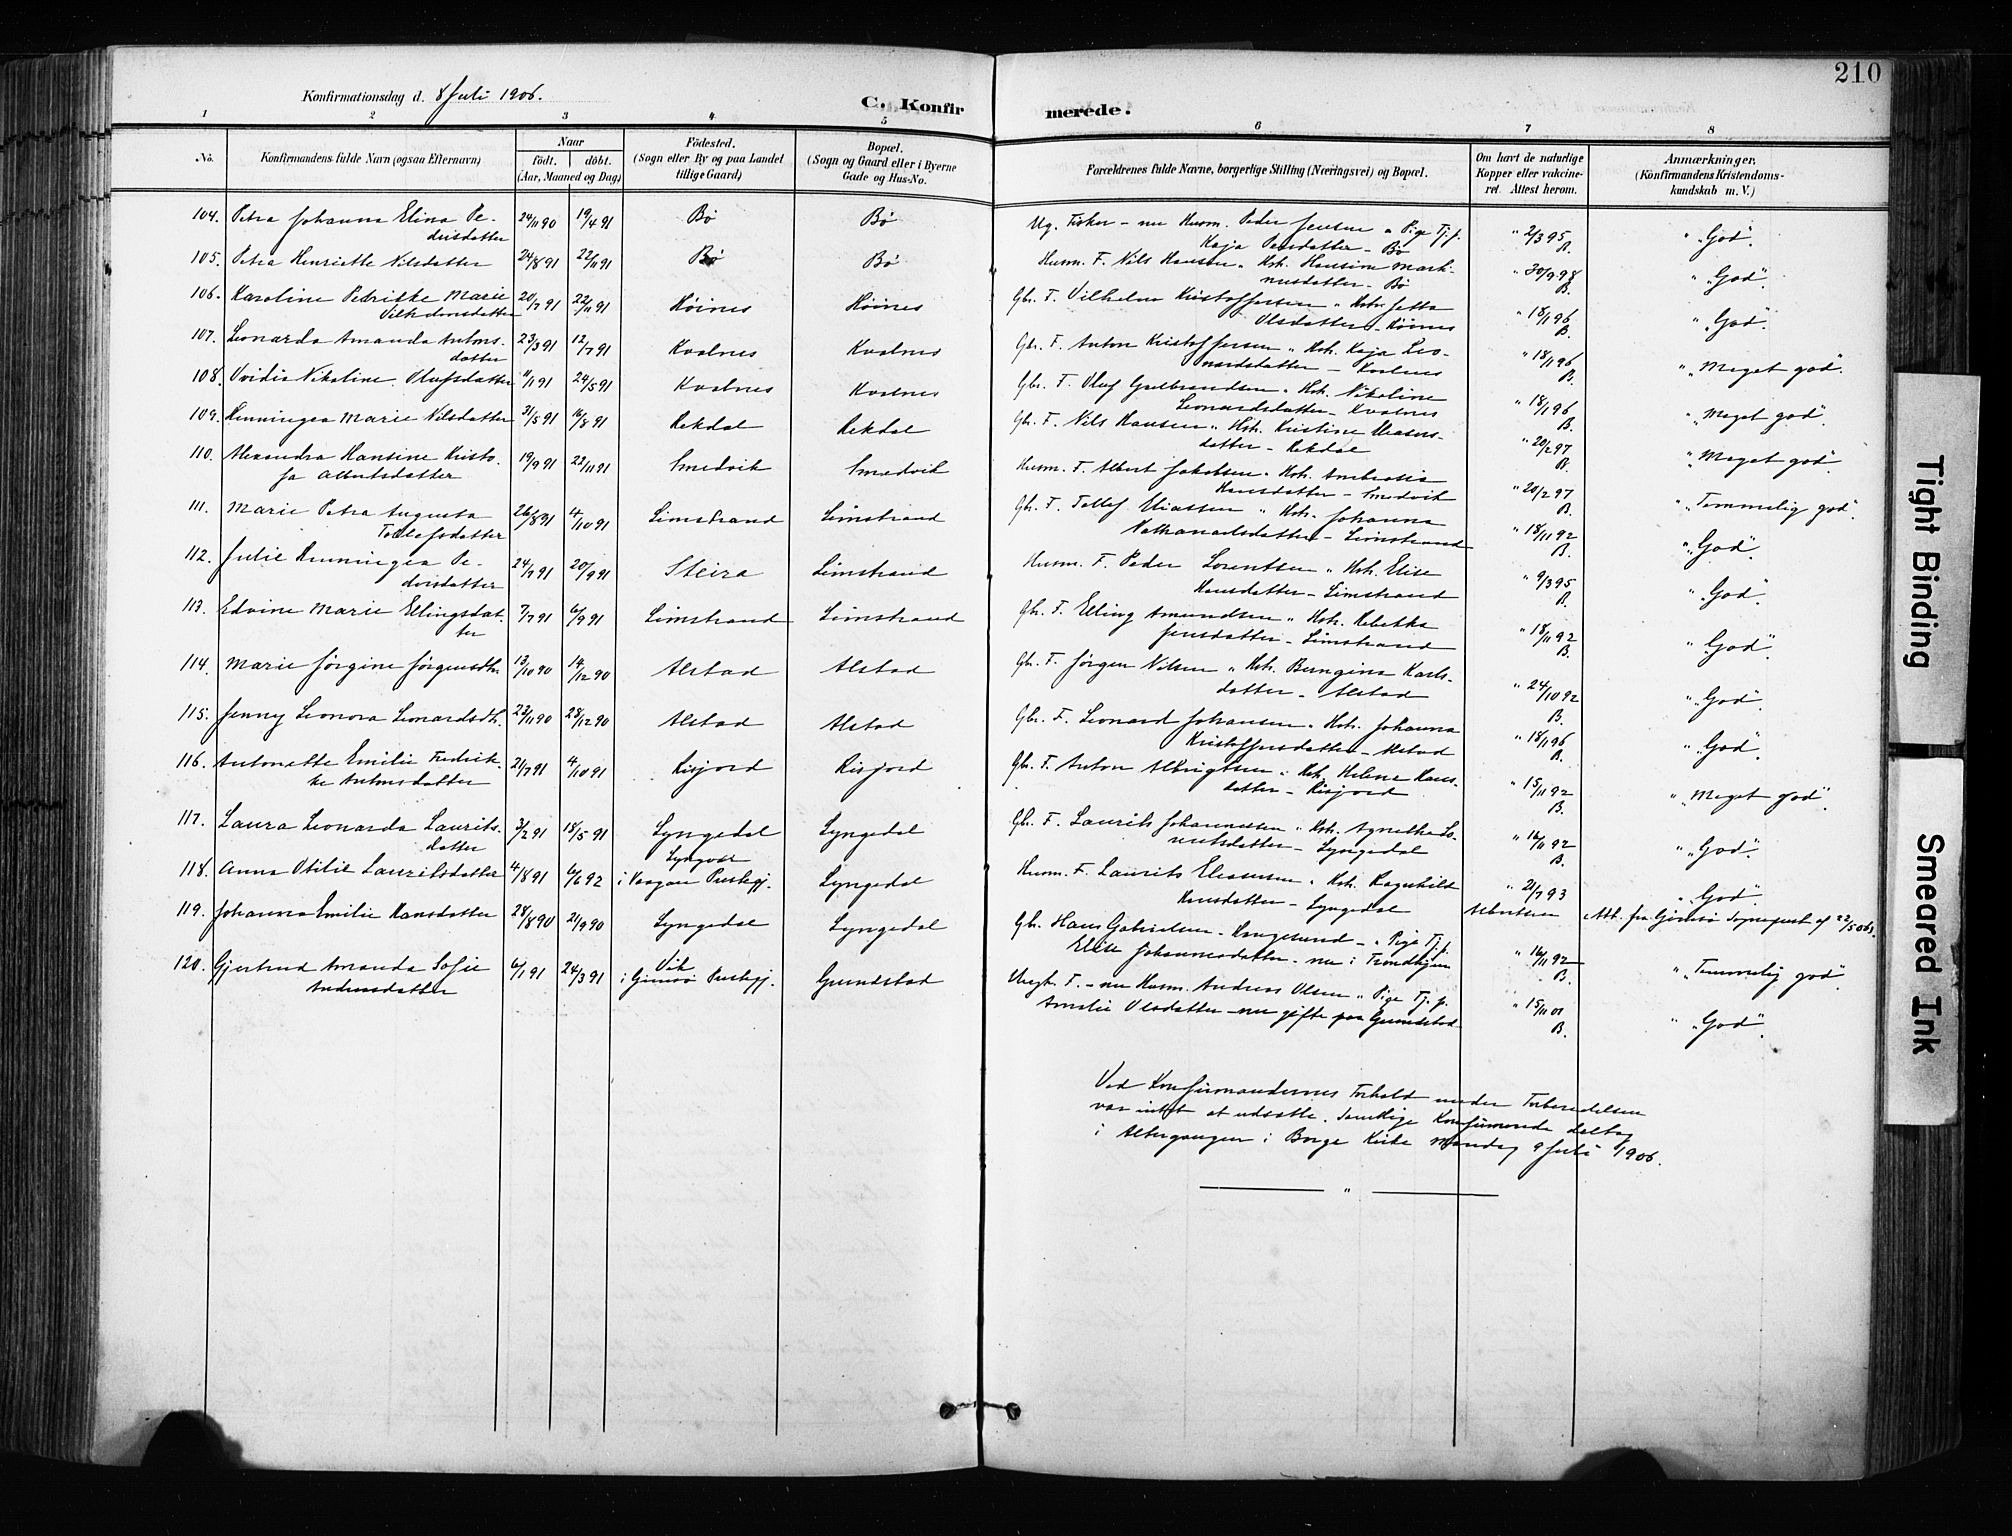 210
Konfirmationsdag d. 8 Juli 1906.
C. Konfirmerede.
1 2 3 4 5 6 7 8
No.
Konfirmandens fulde Navn (ogsaa Efternavn)
Naar
født. døbt.
(Aar, Maaned og Dag)
Fødested.
(Sogn eller By og paa Landet
tillige Gaard)
Bopæl.
(Sogn og Gaard eller i Byerne
Gade og Hus-No.
Forældrenes fulde Navne, borgerlige Stilling (Næringsvei) og Bopæl.
Om havt de naturlige
Kopper eller vakcine-
ret. Attest herom.
Anmærkninger.
(Konfirmandens Kristendoms-
kundskab m. V.)
104. Petra Johanna Elina Pe- 24/11 90 19/4 91 Bø Bø Ug. Fisker - nu Husm. Peder Jensen " Pige Tj.p. " 2/3 95 " "God".
dersdatter Kaja Pedersdatter - Bø B.
105. Petra Henriette Nilsdatter 24/8 91 22/11 91 Bø Bø Husm. F. Nils Hansen " Hst. Hansine Mark- " 30/9 98 " "God".
nusdatter - Bø B.
106. Karoline Petrikke Marie 20/7 91 22/11 91 Høines Høines Gbr. F. Vilhelm Kristoffersen " Hst. Jetta " 18/1 96 " "God".
Vilhelmsdatter Olsdatter - Høines B.
107. Leonarda Amanda Antons- 23/3 91 12/7 91 Kvalnes Kvalnes Gbr. F. Anton Kristoffersen " Hst. Kaja Leo- " 18/1 96 " "Meget god".
datter nardsdatter - Kvalnes B.
108. Ovidia Nikoline Olufsdatter 11/1 91 24/5 91 Kvalnes Kvalnes Gbr. F. Oluf Gulbrandsen " Hst. Nikoline " 18/1 96 " "Meget god".
Leonardsdatter - Kvalnes B.
109. Henningea Marie Nilsdatter 31/5 91 16/8 91 Rekdal Rekdal Gbr. F. Nils Hansen " Hst. Kristine " 20/2 97 " "Meget god".
datter - Rekdal B.
110. Alexandra Hansine Kristo- 19/9 91 22/11 91 Smedvik Smedvik Husm. F. Albert Jakobsen " Hst. Ambrosia " 20/2 97 " "Temmelig god".
fa Albertsdatter Hansdatter - Smedvik B.
111. Marie Petra Augusta 26/8 91 4/10 91 Limstrand Limstrand Gbr. F. Tollef Eliassen " Hst. Johanna " 18/11 92 " "God".
Tollefsdatter Nathanaelsdatter - Limstrand B.
112. Julie Henningea Pe- 24/7 91 20/9 91 Steira Limstrand Husm. F. Peder Lorentsen " Hst. Elise " 9/3 95 " "God".
dersdatter Hansdatter - Limstrand B.
113. Edvine Marie Ellingsdat- 7/7 91 6/9 91 Limstrand Limstrand Gbr. F. Elling Amundsen " Hst. Rebekka " 18/11 92 " "God".
ter Jensdatter - Limstrand B.
114. Marie Jørgine Jørgensdtr. 13/10 90 14/12 90 Alstad Alstad Gbr. F. Jørgen Nilsen " Hst. Berngina Karls- " 24/10 92 " "God".
datter - Alstad B.
115. Jenny Leonora Leonardsdtr. 22/11 90 28/12 90 Alstad Alstad Gbr. F. Leonard Johansen " Hst. Johanna " 18/1 96 " "God".
Kristoffersdatter - Alstad B.
116. Antonette Emilie Fredrik- 21/7 91 4/10 91 Risjord Risjord Gbr. F. Anton Albrigtsen " Hst. Helene Hans- " 15/11 92 " "Meget god".
ke Antonsdatter datter - Risjord B.
117. Laura Leonarda Laurits- 3/2 91 18/5 91 Lyngedal Lyngedal Gbr. F. Laurits Johannessen " Hst. Agnetha Lo- " 16/11 92 " "God".
datter rentsdatter - Lyngedal B.
118. Anna Otilie Lauritsdatter 4/8 91 6/6 92 i Vaagan Prestegj. Lyngedal Husm. F. Laurits Eliassen " Hst. Ragnhild " 21/7 93 " "God".
Hansdatter - Lyngedal Albertsen Att. fra Gimsø Sogneprest af 22/5 06.
119. Johanna Emilie Hansdatter 28/8 90 21/9 90 Lyngedal Lyngedal Gbr. Hans Gabrielsen - Haugesund - " Pige Tj.p. " 16/11 92 " "Temmelig god".
Elise Johannesdatter - nu i Trondhjem B.
120. Gjertrud Amanda Sofie 6/1 91 24/3 91 Vik Grundstad Ungk. F. - nu Husm. Andreas Olsen " Pige Tj.p. " 15/11 01 " "God".
Andreasdatter i Gimsø Prestegj. Amalie Olsdatter - nu gifte paa Grundstad B.
Ved Konfirmandernes Forhold under Forberedelsen
var intet at udsætte. Samtlige Konfirmerede deltog
i Altergangen i Borge Kirke Mandag 9 Juli 1906.
"
Tight Binding
Smeared Ink